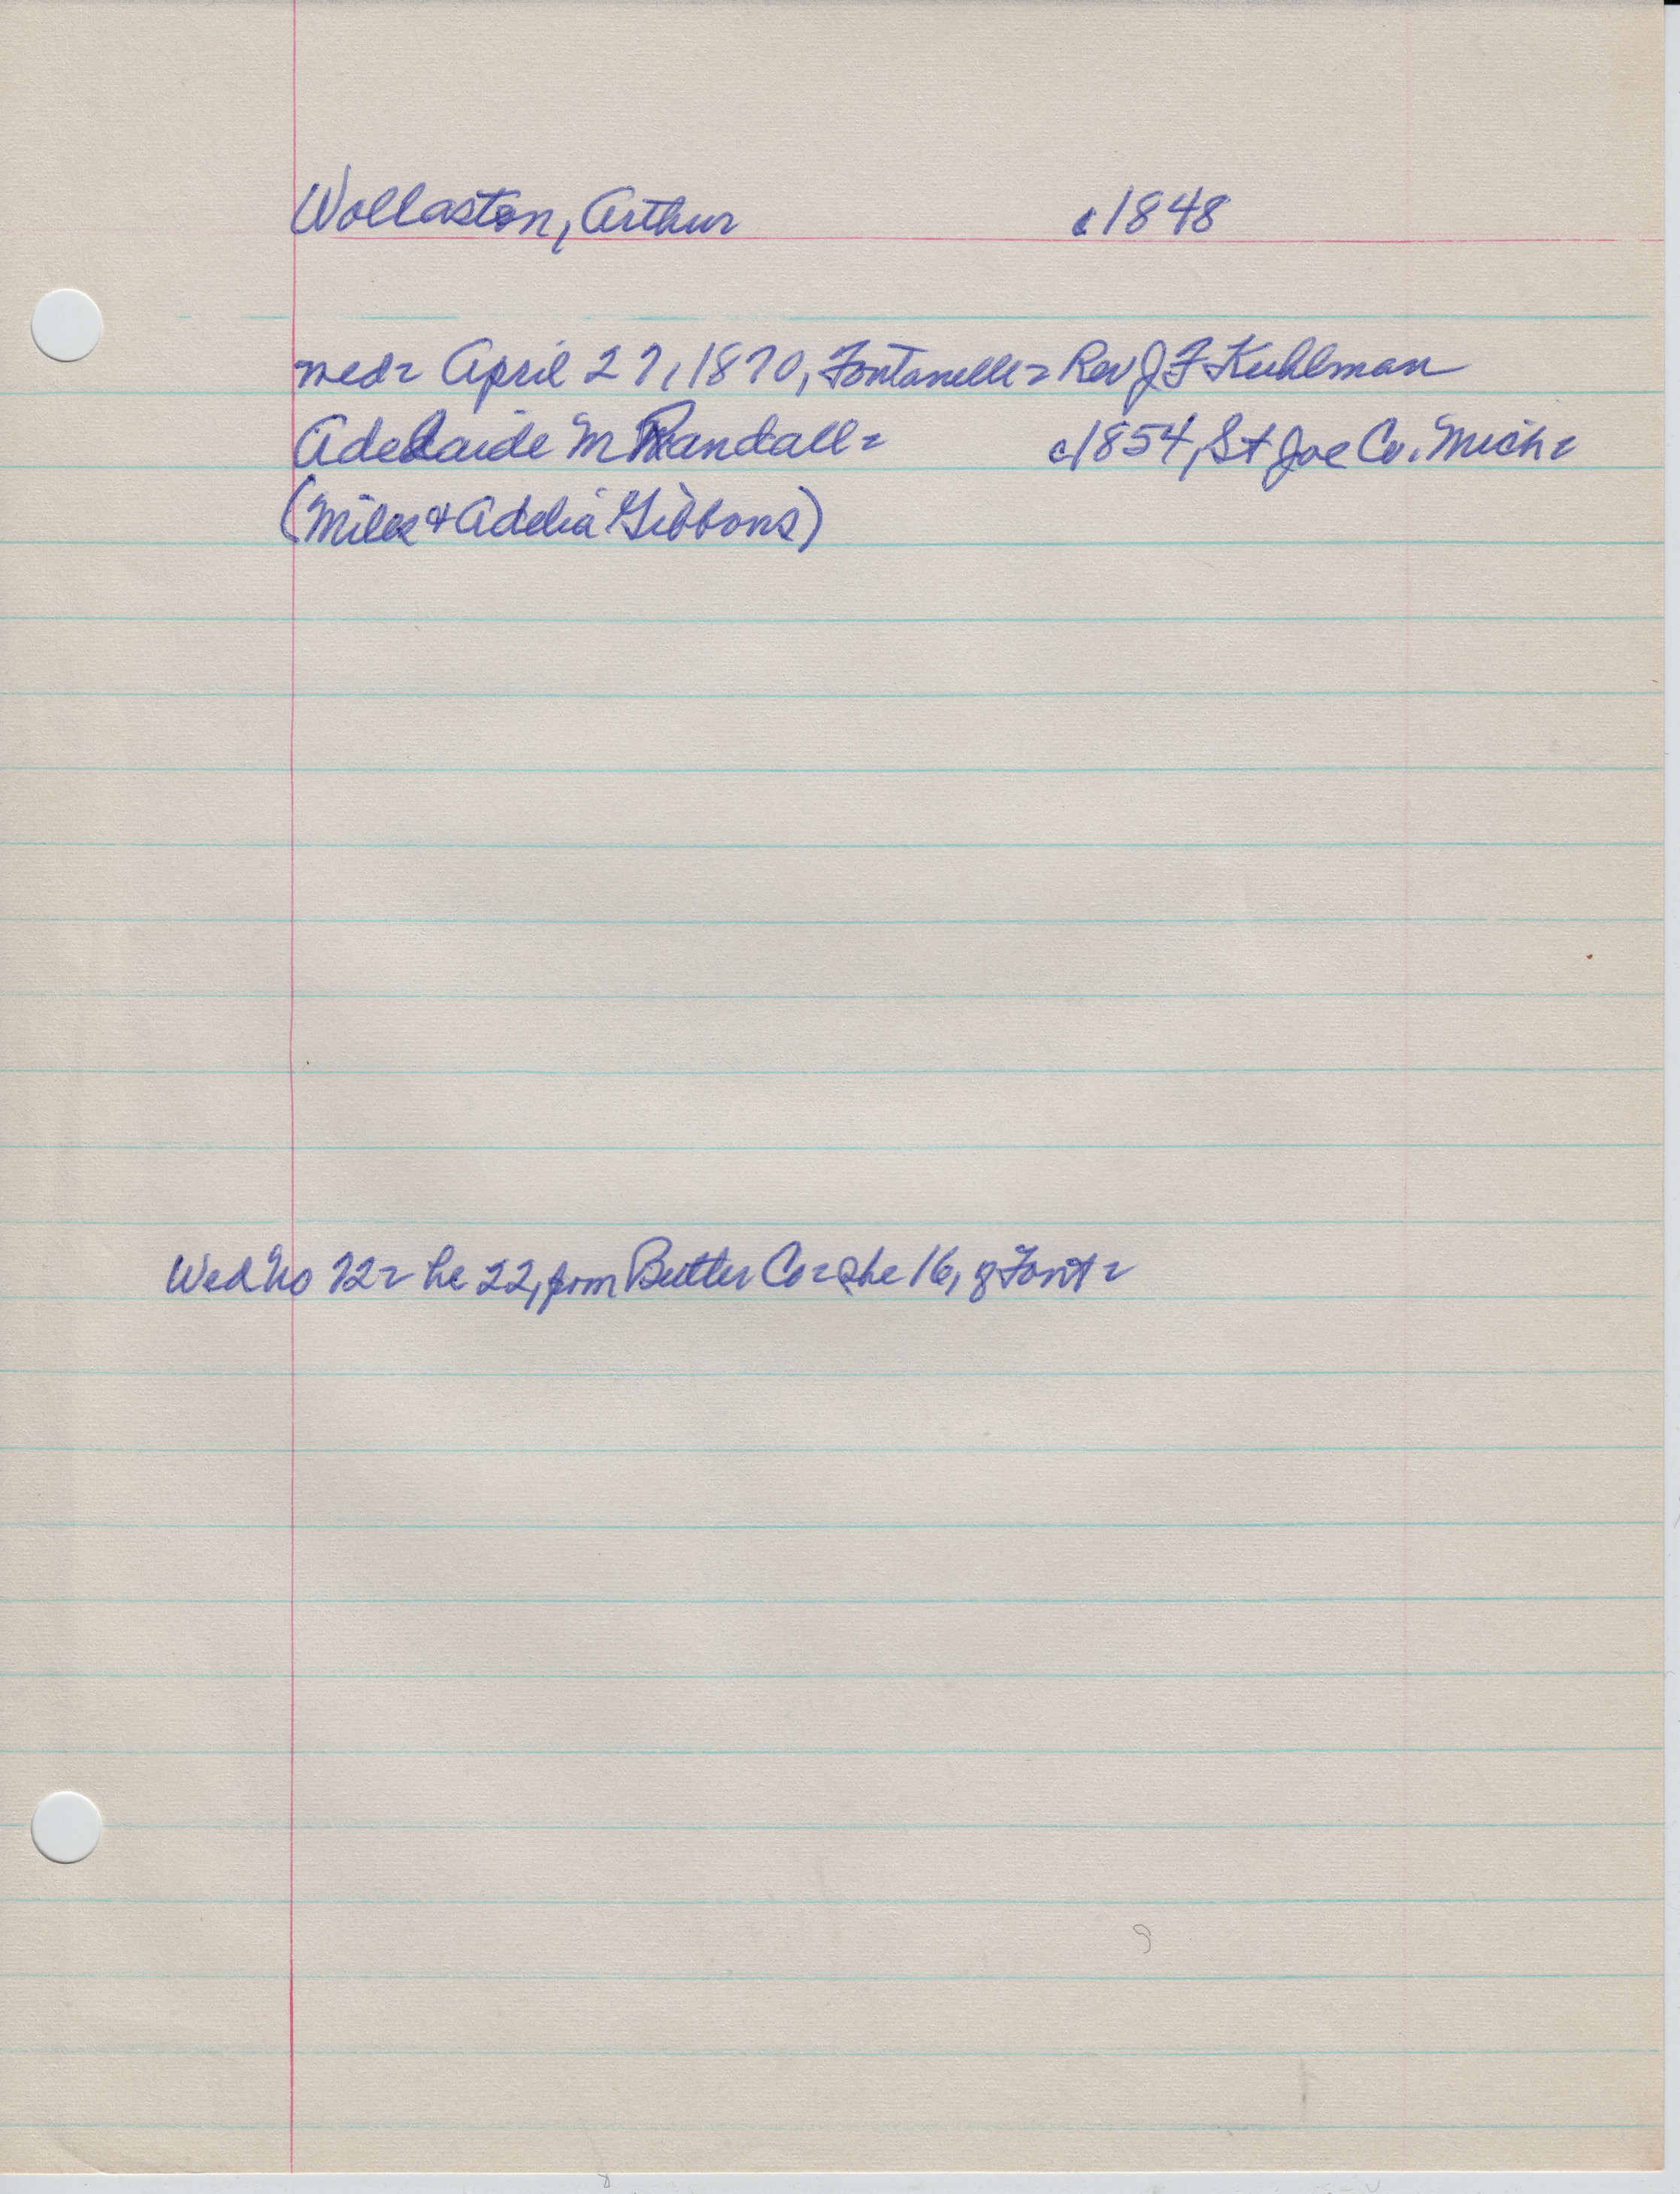 Wollaston, Arthur c1848
wed= April 27, 1870, Fontanelle= Rev J F Kuhlman
Adelaide M Randall= c1854, St Joe Co. Mich=
(Miles & Adelia Gibbons)
Wed No 72= he 22, from Butler Co= she 16, of Font=